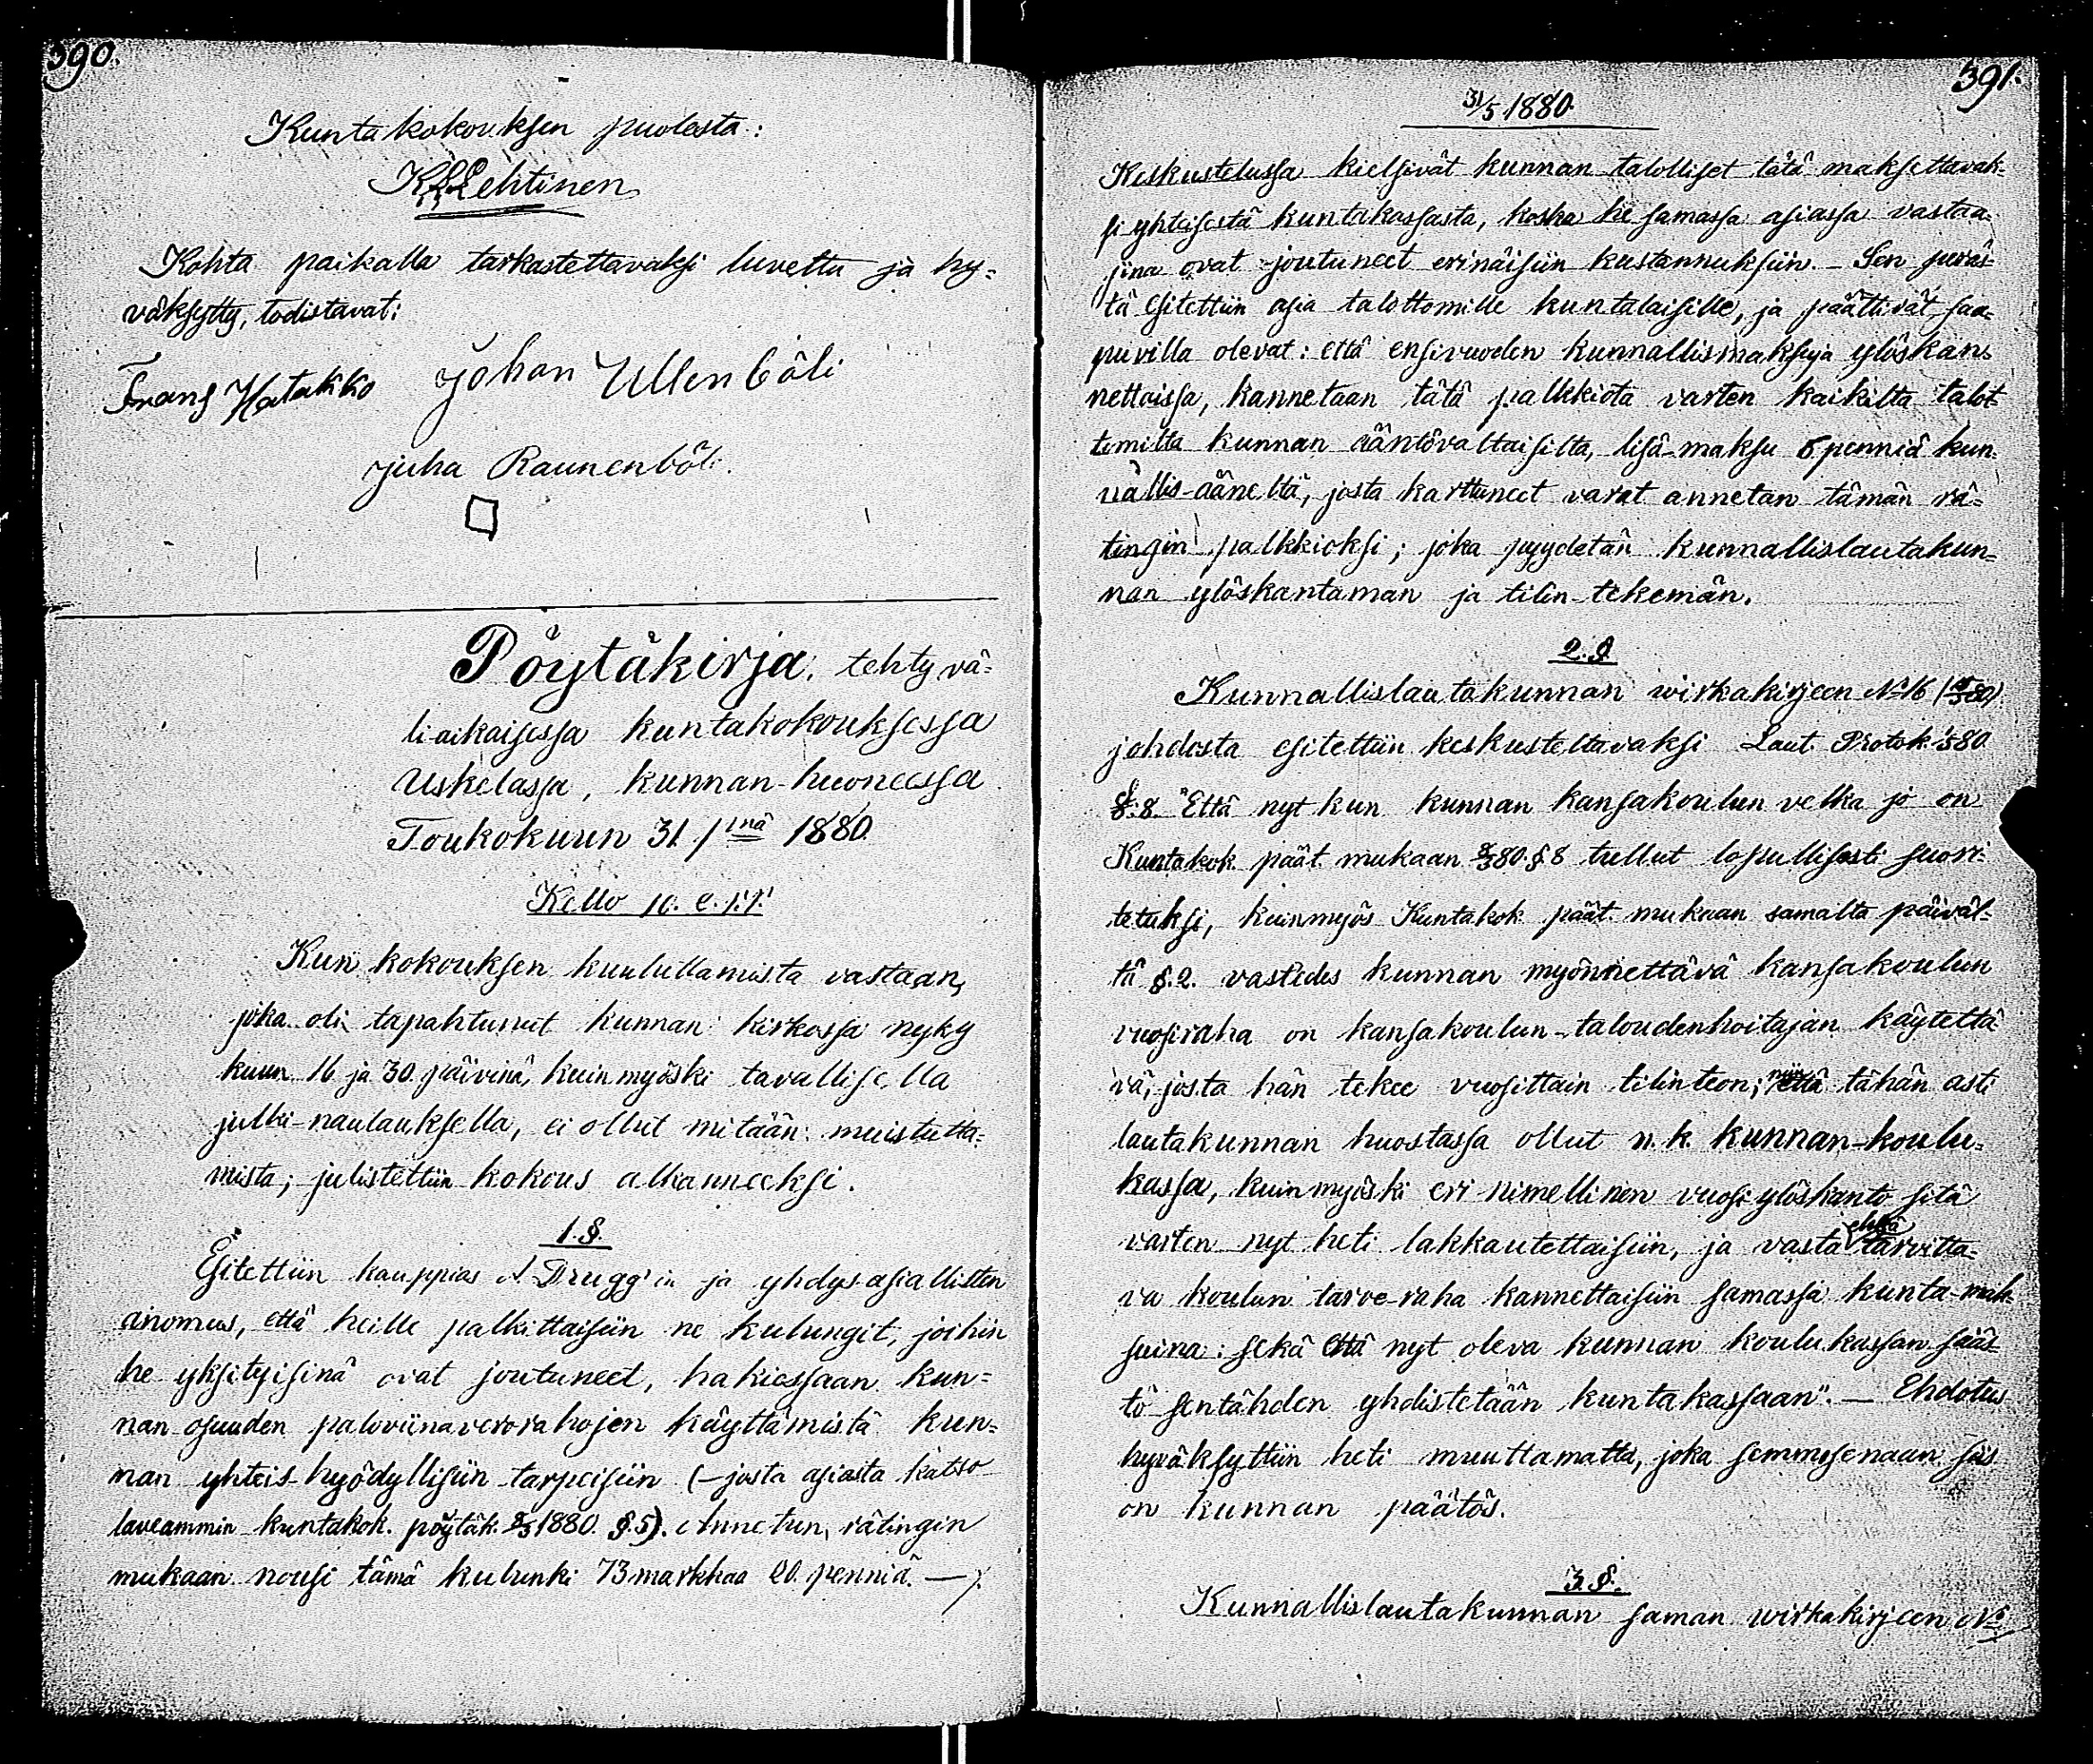 390.
Kuntakokouksen puolesta:
K. Lehtinen
Kohta paikalla tarkastettavaksi luvettu ja hy-
väksytty, todistavat:
Frans Hatakko Johan Ullenböli
Juha Raunenböli.
Pöytäkirja, tehty vä-
liaikaisessa kuntakokouksessa
Uskelassa, kunnan-huoneessa
Toukokuun 31 pnä 1880.
Kello 10. e.p.p.
Kun kokouksen kuuluttamista vastaan,
joka oli tapahtunut kunnan kirkossa nyky
kuun 16 ja 30 päivinä, kuin myöski tavallisella
julki-naulauksella, ei ollut mitään muistutta-
mista; julistettiin kokous alkanneeksi.
1. §.
Esitettiin kauppias A. Drugg'in ja yhdys-asiallisten
anomus, että heille palkittaisiin ne kulungit, joihin
he yksityisinä ovat joutuneet, hakiossaan kun-
nan osuuden paloviinaverorahojen käyttämistä kun-
nan yhteis-hyödyllisiin tarpeisiin (- josta asiasta katso
laveammin kuntakok. pöytäk. 1880. §. 5). Annetun rätingin
mukaan nousi tämä kulunki 73 markkaa 20 penniä. —
391.
31/5 1880.
Keskustelussa kielsivät kunnan talolliset tätä maksettavak-
si yhteisestä kuntakassasta, koska he samassa asiassa vastaa-
jina ovat joutuneet erinäisiin kustannuksiin. - Sen peräs-
tä esitettiin asia talottomille kuntalaisille, ja päättivät saa-
puvilla olevat: että ensivuoden kunnallismaksuja ylöskan-
nettaissa, kannetaan tätä palkkiota varten kaikilta talot-
tomilta kunnan ääntövaltaisilta, lisä-maksu 5 penniä kun-
nallis-ääneltä, josta karttuneet varat annetan tämän rä-
tingin palkkioksi; joka pyydetän kunnallislautakun-
nan ylöskantaman ja tilin-tekemän.
2. §.
Kunnallislautakunnan wirkakirjeen No 16
johdosta esitettiin keskusteltavaksi Laut. Protok.
§. 8. "Että nyt kun kunnan kansakoulun velka jo on
Kuntakok. päät. mukaan § 8 tullut lopullisesti suori-
tetuksi, kuin myös Kuntakok. päät. mukaan samalta päiväl-
tä §. 2. vastedes kunnan myönnettävä kansakoulun
vuosiraha on kansakoulun-taloudenhoitajan käytettä-
vä, josta hän tekee vuosittain tilinteon; niin että tähän asti
lautakunnan huostassa ollut n.k. kunnan-koulu-
kassa, kuin myöski eri nimellinen vuosi ylöskanto sitä
varten nyt heti lakkautettaisiin, ja vasta ehkä tarvitta-
va koulun tarve-raha kannettaisiin samassa kunta-mak-
suina: sekä että nyt oleva kunnan koulukassan sääs-
tö sentähden yhdistetään kuntakassaan". — Ehdotus
hyväksyttiin heti muuttamatta, joka semmosenaan siis
on kunnan päätös.
3. §.
Kunnallislautakunnan saman wirkakirjeen No